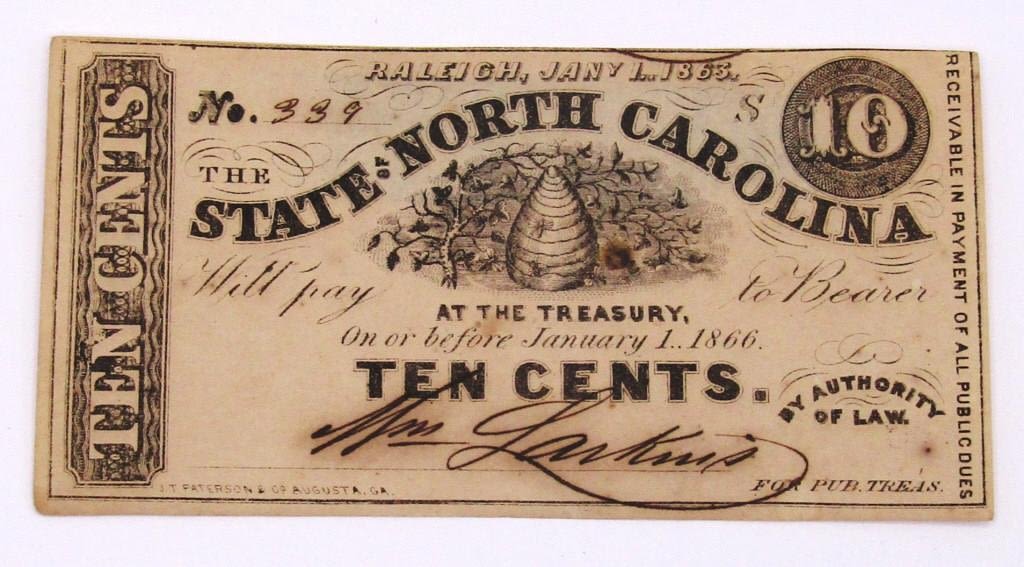 RALEIGH, JANY 1..1863.
No. 339
$ 10
THE
STATE OF NORTH CAROLINA
Will pay to Bearer
AT THE TREASURY,
On or before January 1..1866.
TEN CENTS.
BY AUTHORITY
OF LAW.
Wm Larkins
FOR PUB. TREAS.
J.T. PATERSON & CO AUGUSTA, GA.
TEN CENTS
RECEIVABLE IN PAYMENT OF ALL PUBLIC DUES